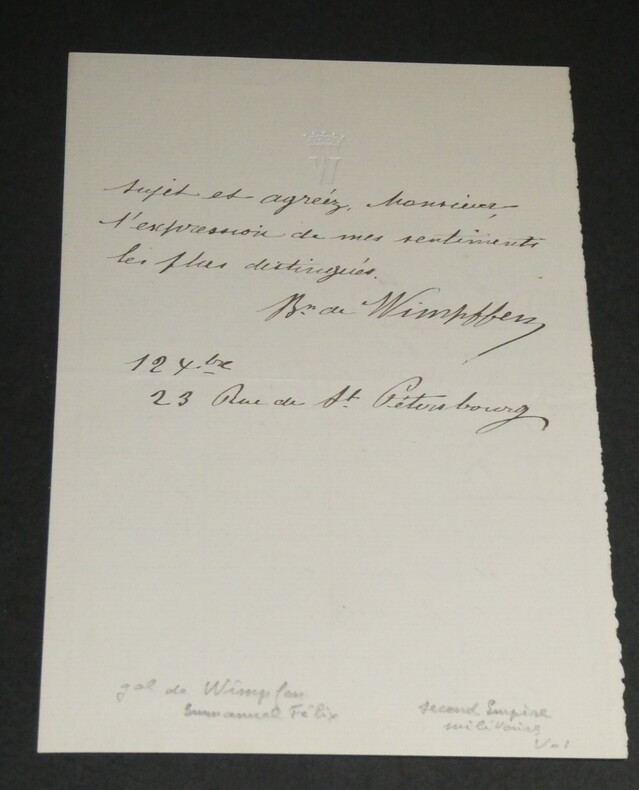 W
sujet et agréez, Monsieur,
l'expression de mes sentiments
les plus distingués.
Bn de Wimpffen
12 Xbre
23 Rue de St. Pétersbourg
gal de Wimpfen
Emmanuel Félix
second Empire
militaire